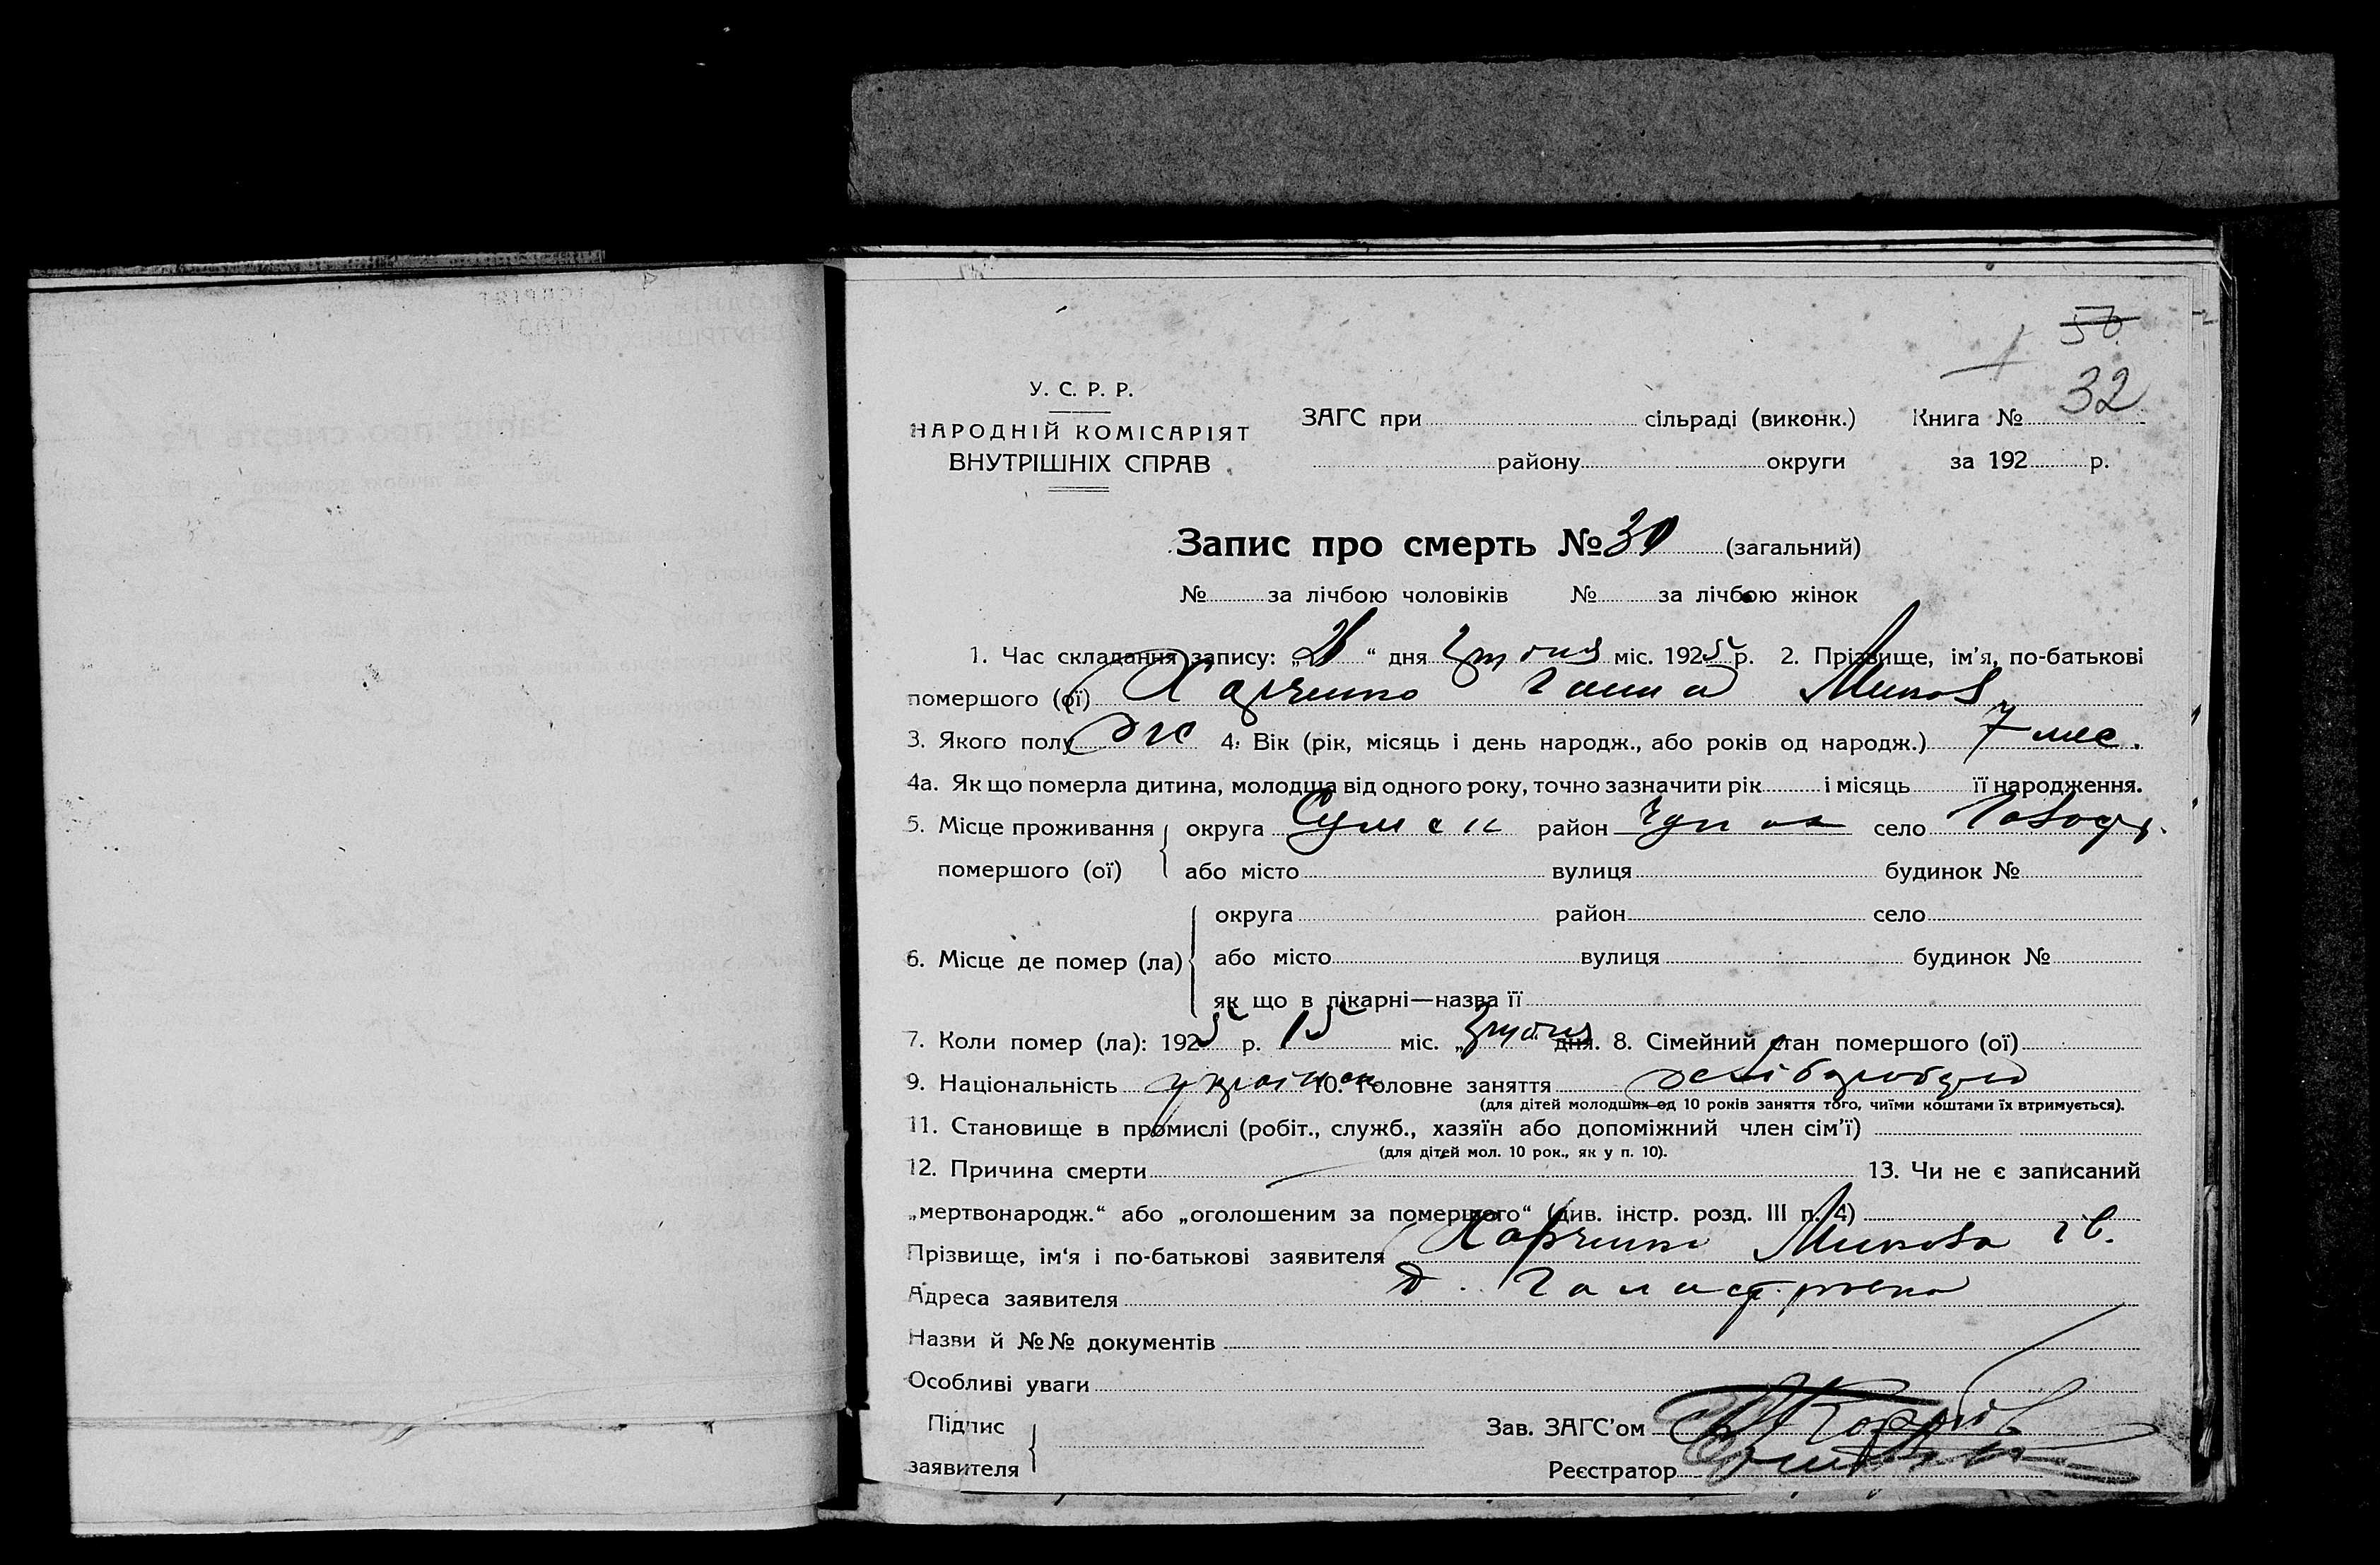 50
32
У. С. Р. Р.
НАРОДНІЙ КОМІСАРІЯТ
ВНУТРІШНІХ СПРАВ
ЗАГС при сільраді (виконк.) Книга №
району округи за 192 р.
Запис про смерть № 30 (загальний)
№ за лічбою чоловіків № за лічбою жінок
1. Час складання запису: „ “ дня міс. 1925 р. 2. Прізвище, ім’я, по-батькові
помершого (ої) Харченко Ганна Микол
3. Якого полу ж 4. Вік (рік, місяць і день народж., або років од народж.) 7 мес.
4а. Як що померла дитина, молодша від одного року, точно зазначити рік і місяць її народження.
5. Місце проживання округа Сумск район село
помершого (ої) або місто вулиця будинок №
округа район село
6. Місце де помер (ла) або місто вулиця будинок №
як що в лікарні—назва її
7. Коли помер (ла): 1925 р. 15 міс. „ дня. 8. Сімейний стан помершого (ої)
9. Національність україн 10. Головне заняття хліборобство
(для дітей молодших од 10 років заняття того, чиїми коштами їх втримується).
11. Становище в промислі (робіт., служб., хазяїн або допоміжний член сім’ї)
(для дітей мол. 10 рок., як у п. 10).
12. Причина смерти 13. Чи не є записаний
„мертвонародж.“ або „оголошеним за помершого“ (див. інстр. розд. III п. 4)
Прізвище, ім‘я і по-батькові заявителя Харченко Микола Ів.
Адреса заявителя
Назви й №№ документів
Особливі уваги
Підпис
заявителя
Зав. ЗАГС’ом
Реєстратор